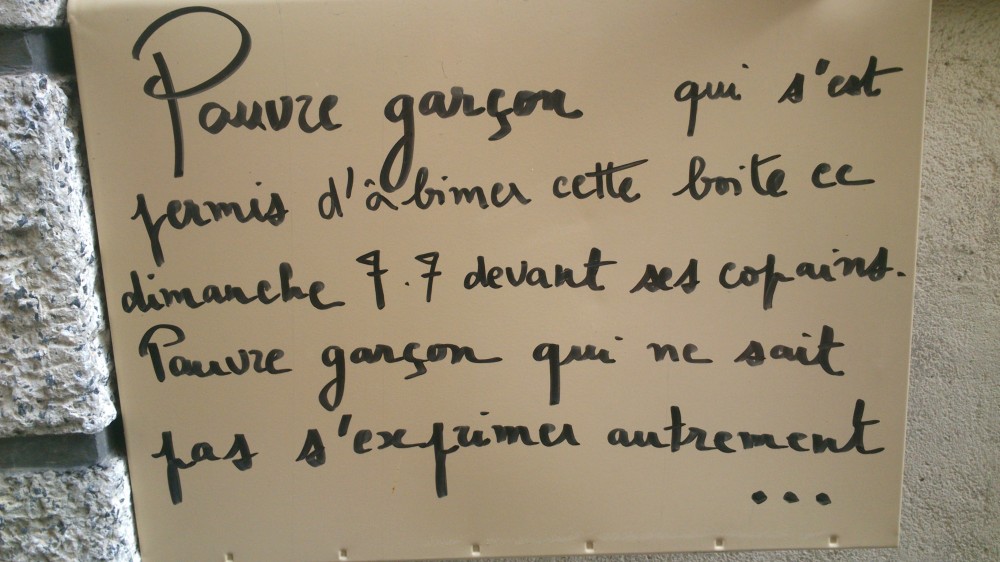 Pauvre garçon qui s'est
permis d'âbimer cette boite ce
dimanche 7.7 devant ses copains.
Pauvre garçon qui ne sait
pas s'exprimer autrement
...